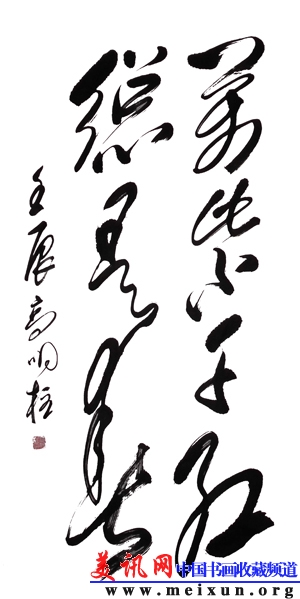 萬紫千紅
總是春
壬辰高明柱
美讯网 中国书画收藏频道
www.meixun.org